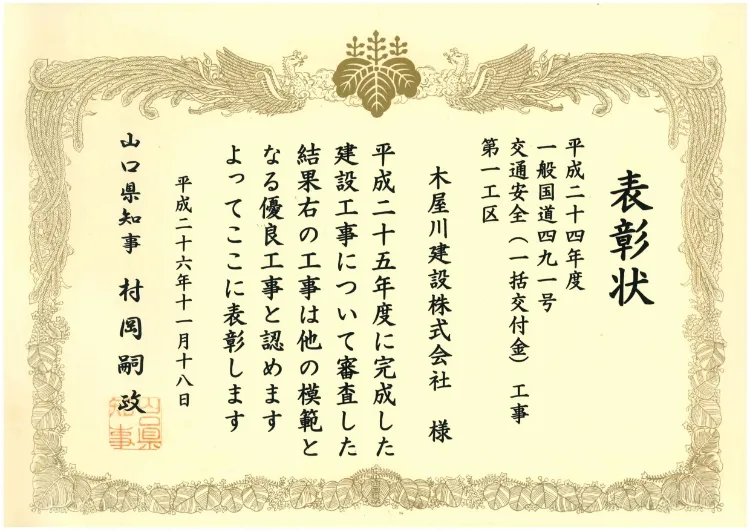 表彰状
平成二十四年度
一般国道四九一号
交通安全(一括交付金)工事
第一工区
木屋川建設株式会社 様
平成二十五年度に完成した
建設工事について審査した
結果右の工事は他の模範と
なる優良工事と認めます
よってここに表彰します
平成二十六年十一月十八日
山口県知事 村岡嗣政
山口県
知事